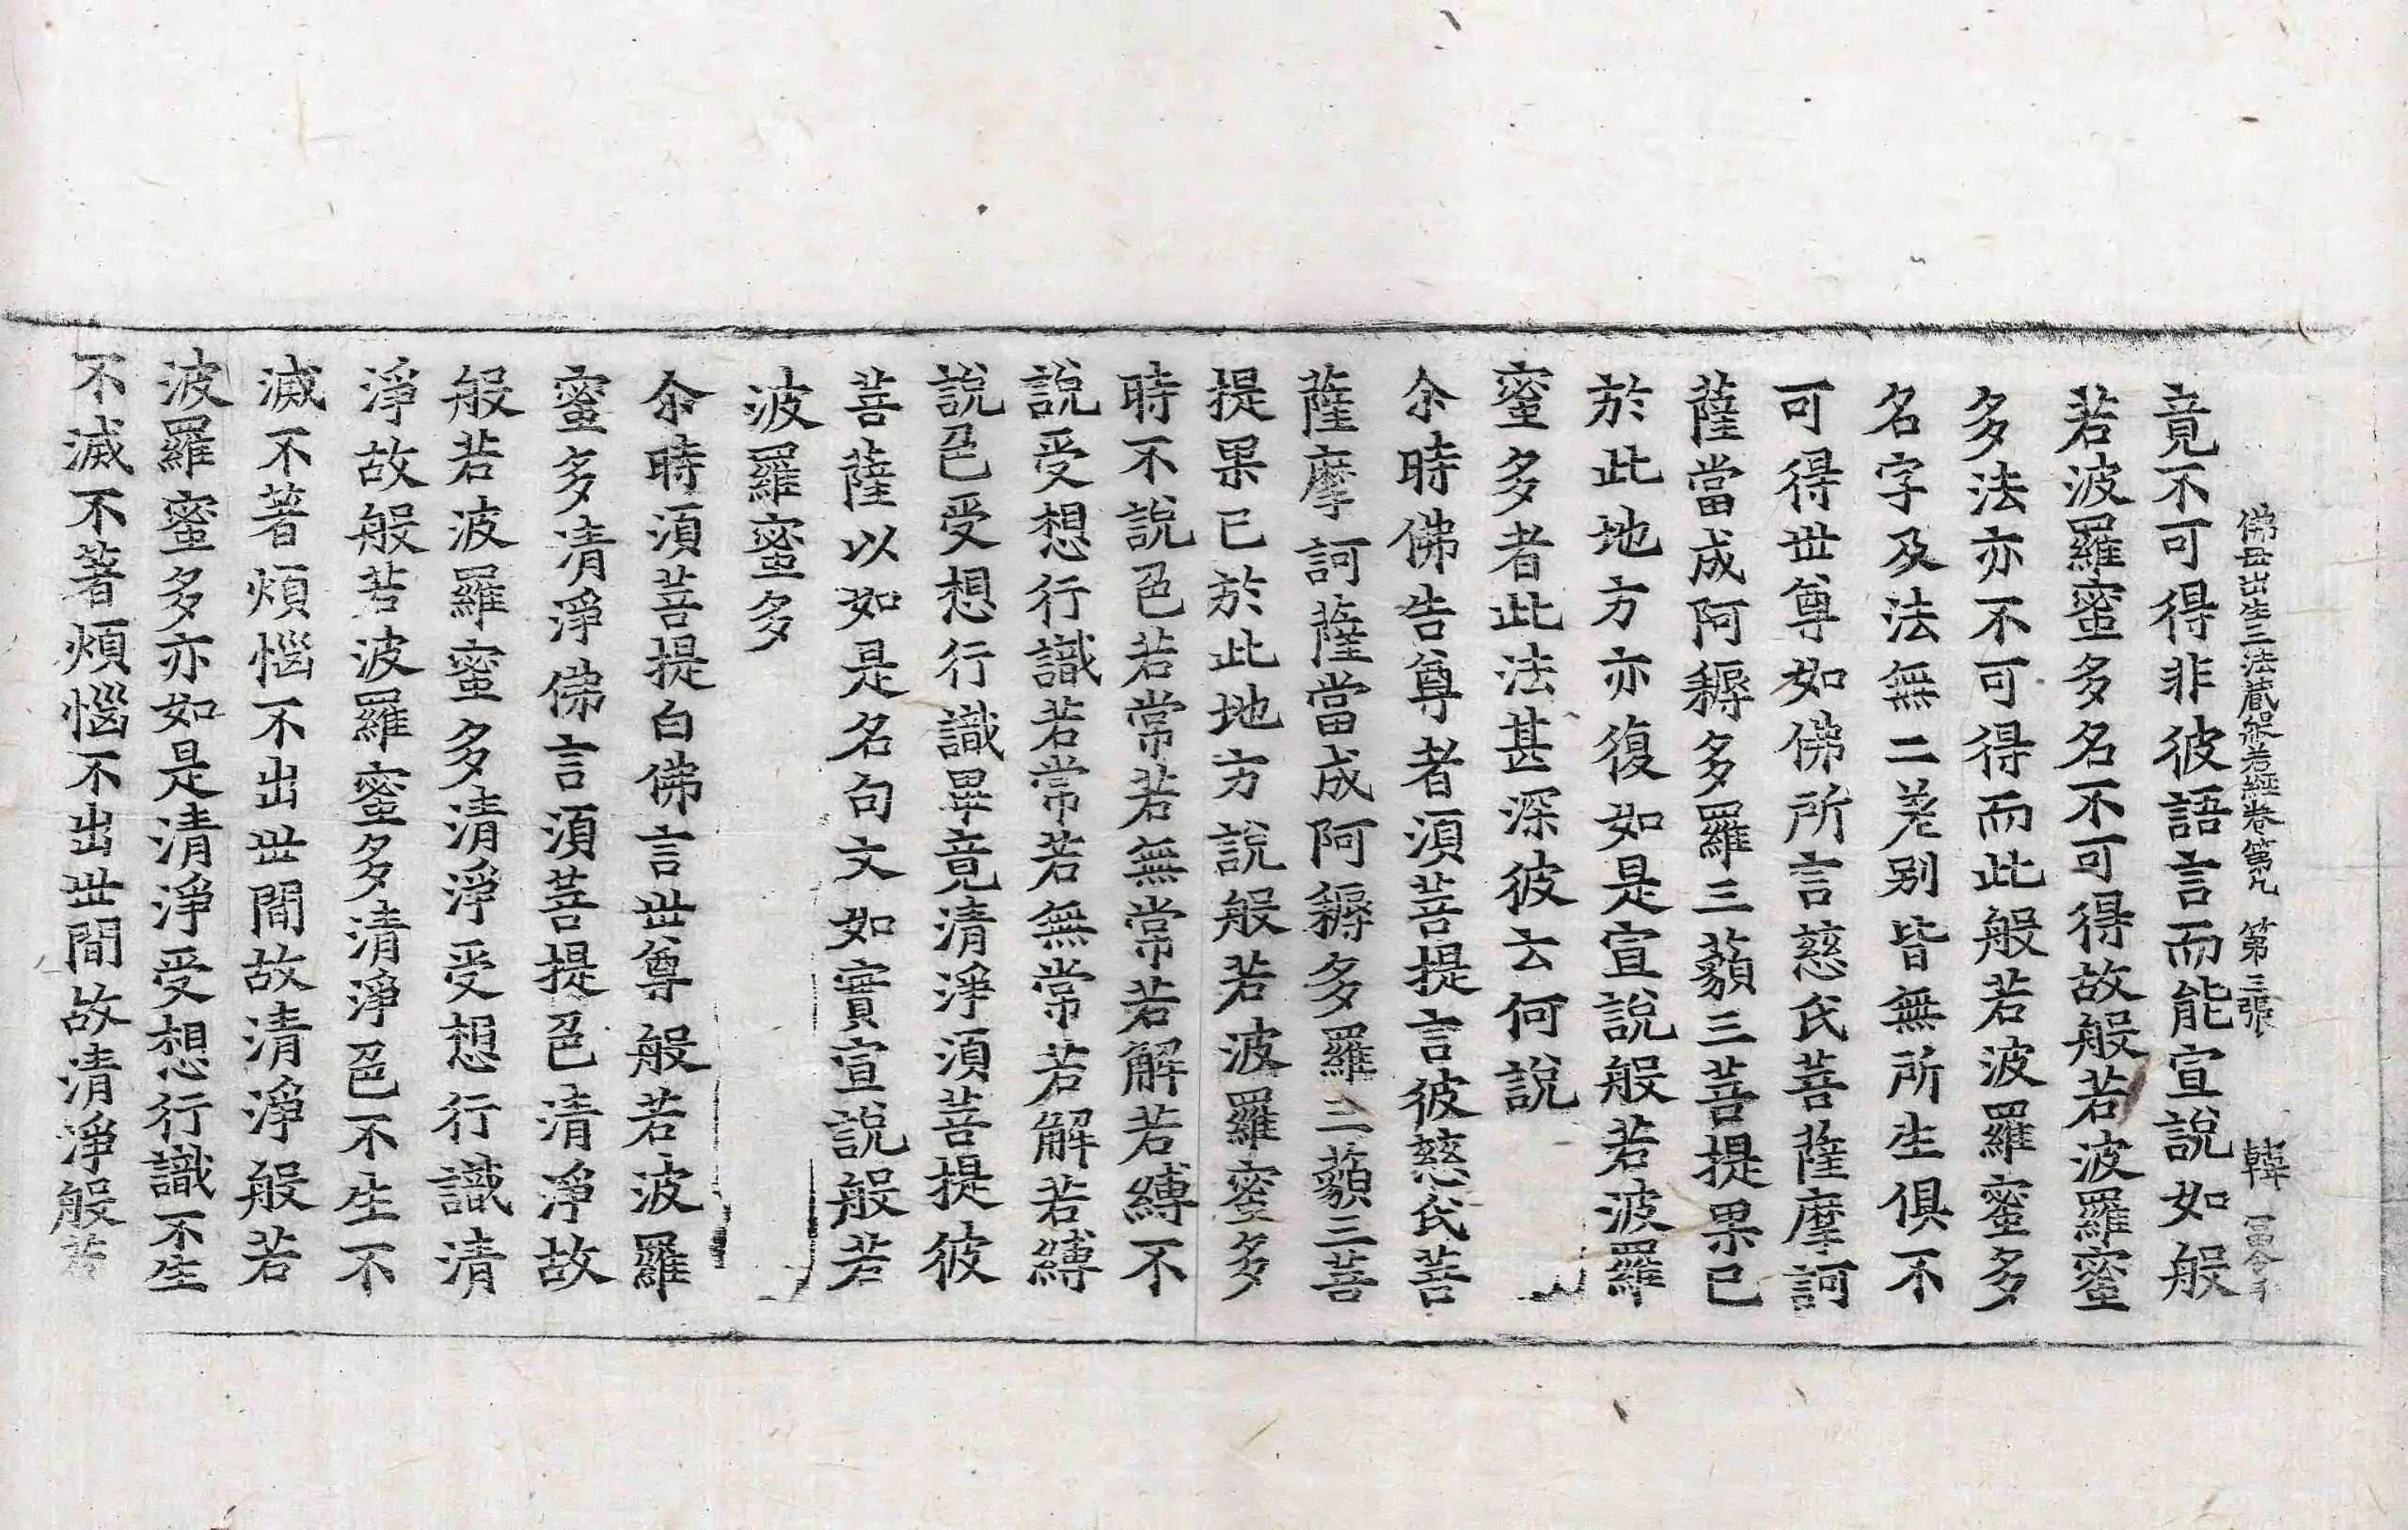 佛母出生三法藏般若經卷第九 第三張 韓
竟不可得非彼語言而能宣說如般
若波羅蜜多名不可得故般若波羅蜜
多法亦不可得而此般若波羅蜜多
名字及法無二差別皆無所生俱不
可得世尊如佛所言慈氏菩薩摩訶
薩當成阿耨多羅三藐三菩提果已
於此地方亦復如是宣說般若波羅
蜜多者此法甚深彼云何說
尒時佛告尊者須菩提言彼慈氏菩
薩摩訶薩當成阿耨多羅三藐三菩
提果已於此地方說般若波羅蜜多
時不說色若常若無常若解若縛不
說受想行識若常若無常若解若縛
說色受想行識畢竟清淨須菩提彼
菩薩以如是名句文如實宣說般若
波羅蜜多
尒時須菩提白佛言世尊般若波羅
蜜多清淨佛言須菩提色清淨故
般若波羅蜜多清淨受想行識清
淨故般若波羅蜜多清淨色不生不
滅不著煩惱不出世間故清淨般若
波羅蜜多亦如是清淨受想行識不生
不滅不著煩惱不出世間故清淨般若